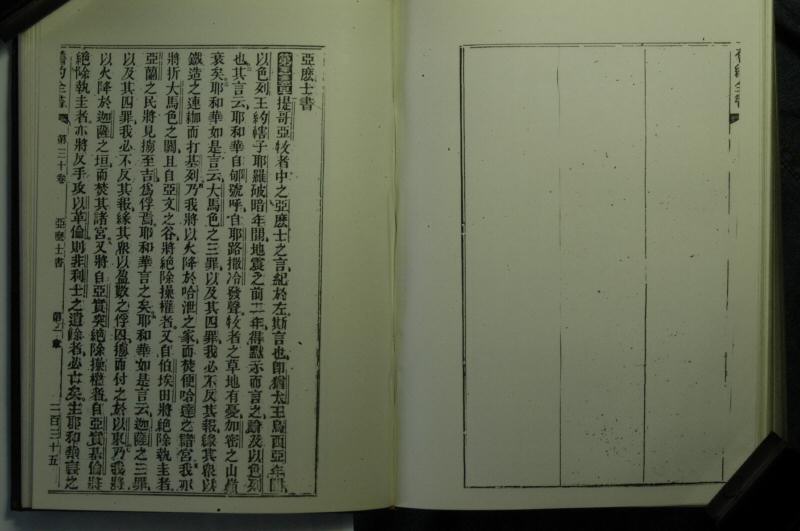 舊約全書
亞麽士書
第一章提哥亞牧者中之亞麽士之言紀於左斯言也卽猶太王烏西亞年間
以色列王約轄子耶羅破暗年間地震之前二年得默示而言之論及以色列
也其言云耶和華自郇號呼自耶路撒冷發聲牧者之草地有憂加密之山嶺
衰矣耶和華如是言云大馬色之三罪以及其四罪我必不反其報緣其衆以
鐵造之連枷而打基列乃我將以火降於哈泄之家而焚便哈達之諸宮我亦
將折大馬色之關且自亞文之谷將絕除操權者又自伯埃田將絕除執圭者
亞蘭之民將見擄至吉爲俘焉耶和華言之矣耶和華如是言云迦薩之三罪
以及其四罪我必不反其報緣其衆以盈數之俘囚擄而付之於以東乃我將
以火降於迦薩之垣而焚其諸宮又將自亞實突絕除操權者自亞實基倫將
絕除執圭者亦將反手攻以革倫則非利士之遺餘者必亡矣主耶和華言之
舊約全書 第三十卷 亞麽士書 第一章 二百三十五